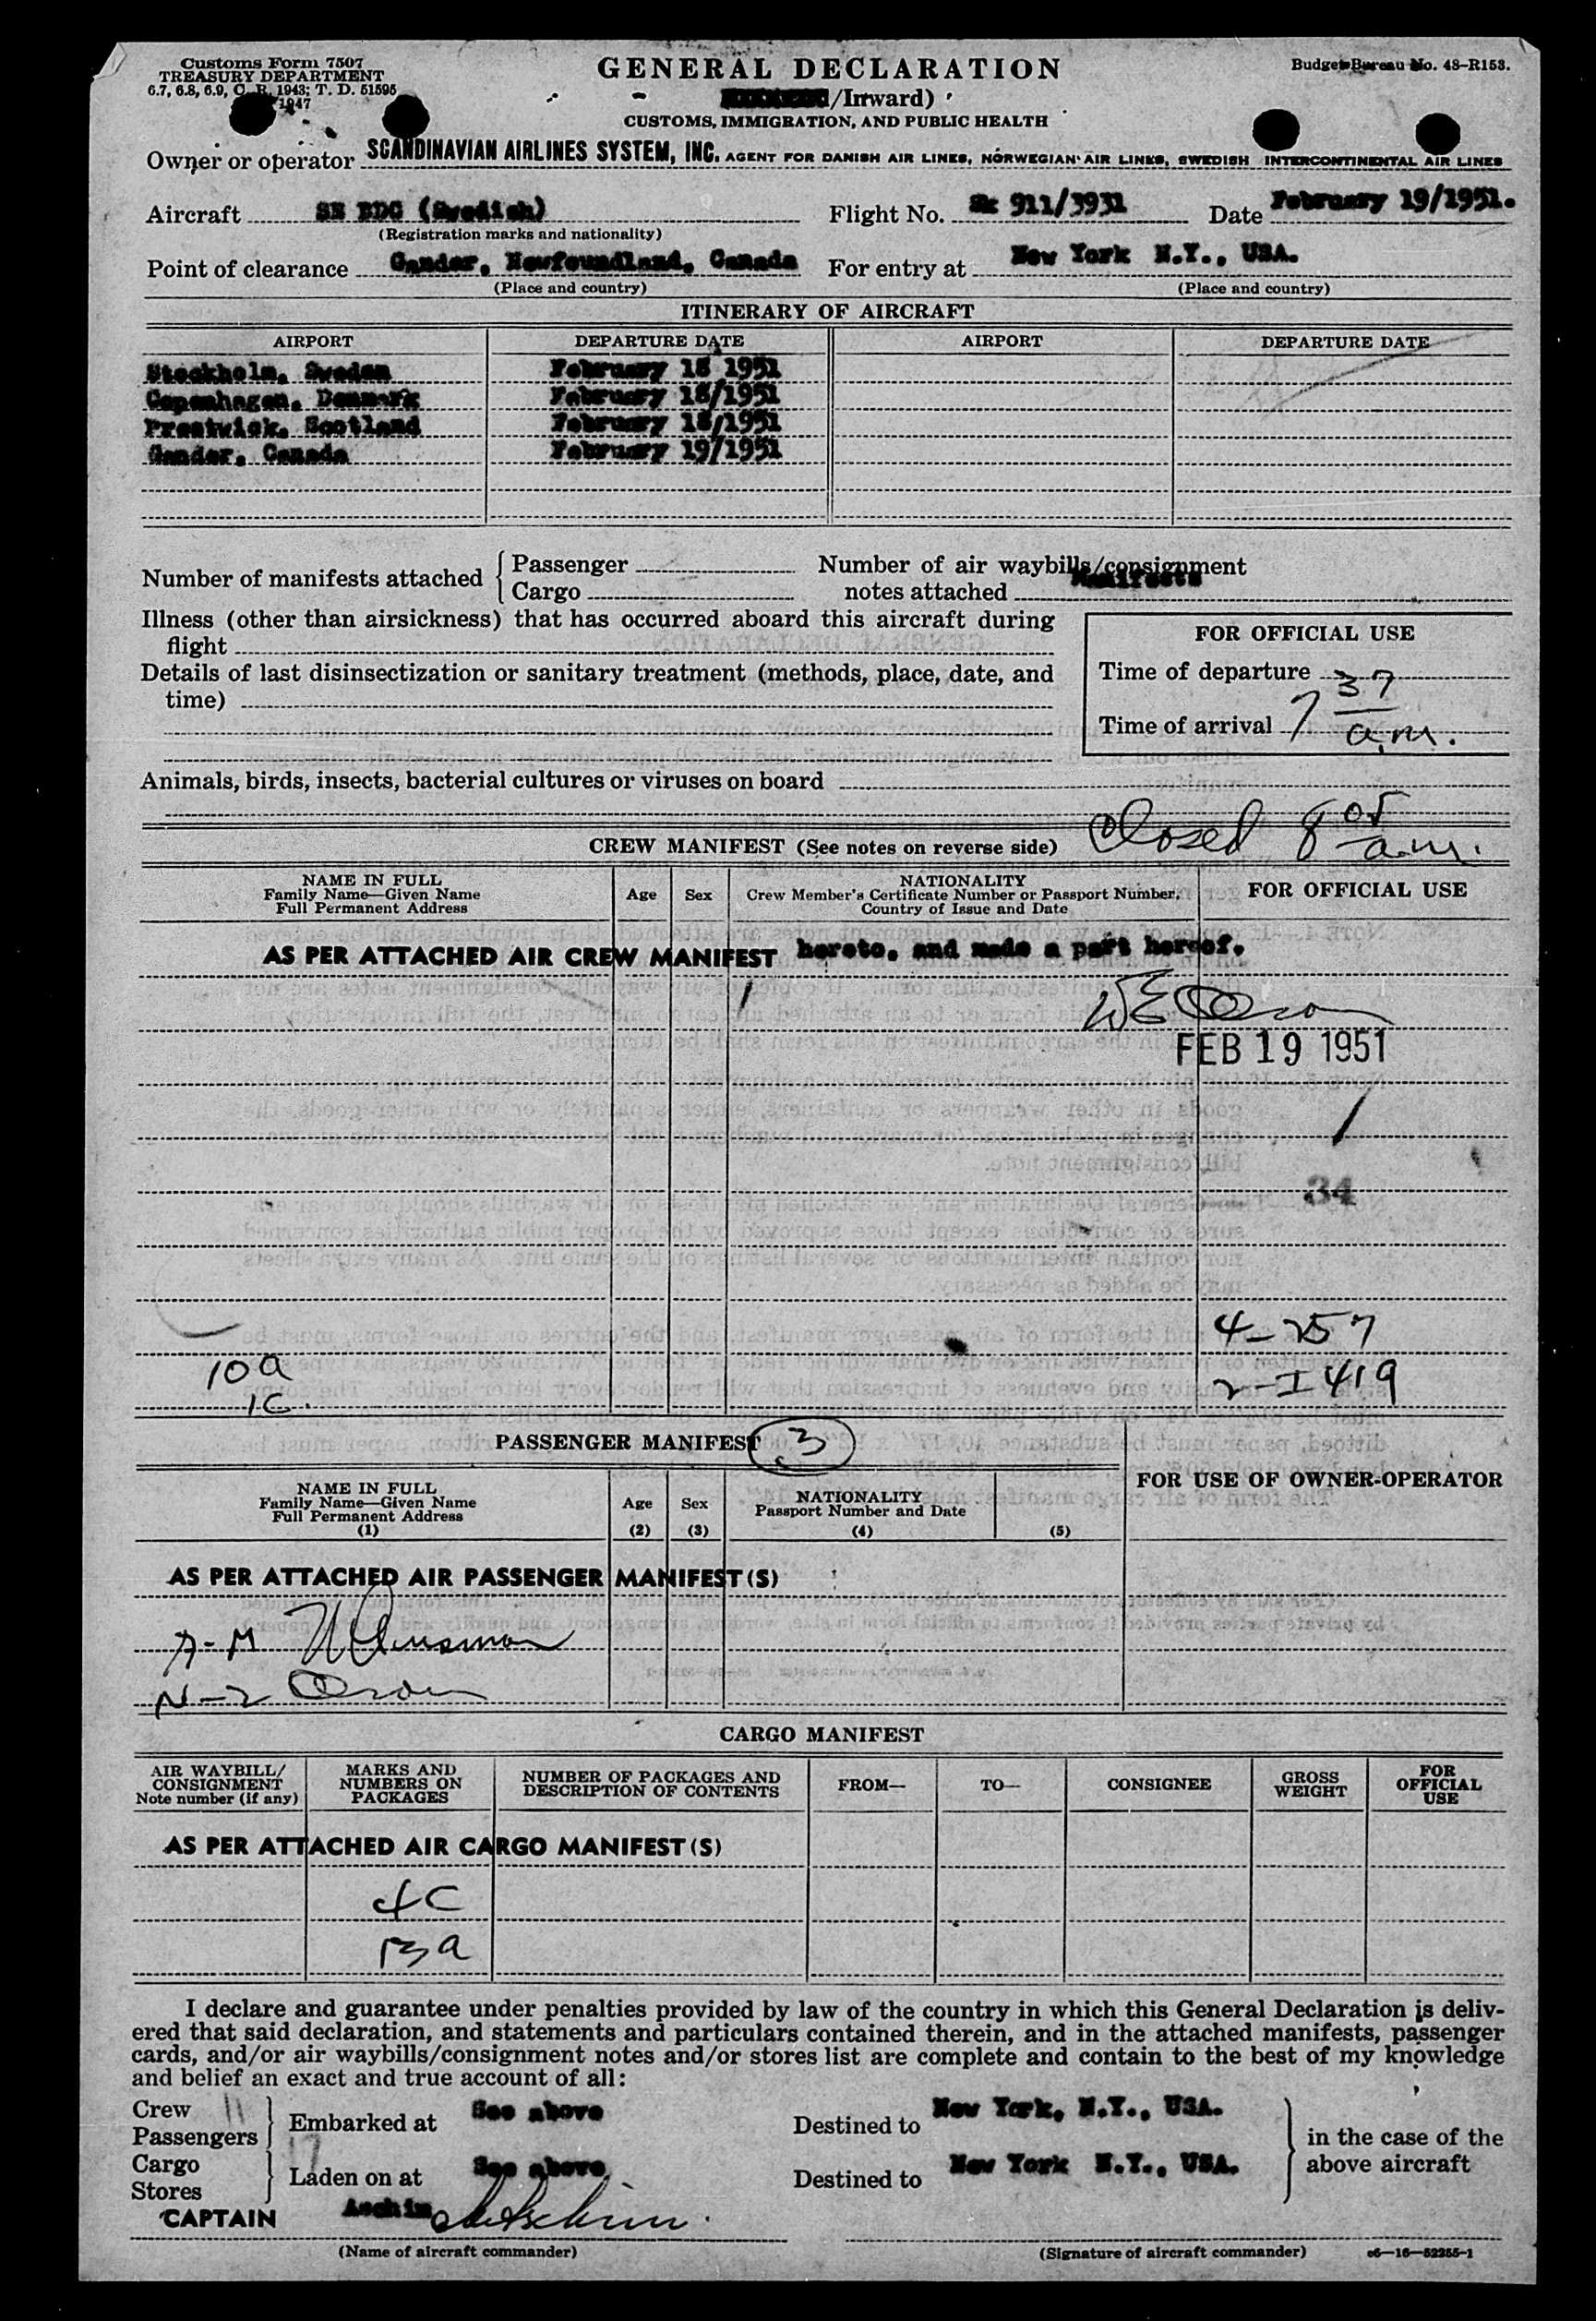 Customs Form 7507
TREASURY DEPARTMENT
6.7, 6.8, 6.9, C. R. 1943; T. D. 51595
1947
GENERAL DECLARATION
/Inward)
CUSTOMS, IMMIGRATION, AND PUBLIC HEALTH
Budget Bureau No. 48-R153.
Owner or operator SCANDINAVIAN AIRLINES SYSTEM, INC. AGENT FOR DANISH AIR LINES, NORWEGIAN AIR LINES, SWEDISH INTERCONTINENTAL AIR LINES
Aircraft SE BDG (Swedish) Flight No. 911/3931 Date February 19/1951.
(Registration marks and nationality)
Point of clearance Gander, Newfoundland, Canada For entry at New York N.Y., USA.
(Place and country) (Place and country)
ITINERARY OF AIRCRAFT
AIRPORT DEPARTURE DATE AIRPORT DEPARTURE DATE
Stockholm, Sweden February 18 1951
Copenhagen, Denmark February 18/1951
Prestwick, Scotland February 18/1951
Gander, Canada February 19/1951
Number of manifests attached { Passenger Number of air waybills/consignment
Cargo notes attached Manifests
Illness (other than airsickness) that has occurred aboard this aircraft during
flight
FOR OFFICIAL USE
Details of last disinsectization or sanitary treatment (methods, place, date, and
time)
Time of departure
Time of arrival 7 37 a.m.
Animals, birds, insects, bacterial cultures or viruses on board
Closed 8 05 a.m.
CREW MANIFEST (See notes on reverse side)
NAME IN FULL
Family Name—Given Name
Full Permanent Address
Age Sex
NATIONALITY
Crew Member's Certificate Number or Passport Number.
Country of Issue and Date
FOR OFFICIAL USE
AS PER ATTACHED AIR CREW MANIFEST hereto, and made a part hereof.
FEB 19 1951
34
4-257
10a
2-I 419
1C.
PASSENGER MANIFEST 3
FOR USE OF OWNER-OPERATOR
NAME IN FULL
Family Name—Given Name
Full Permanent Address
(1)
Age
(2)
Sex
(3)
NATIONALITY
Passport Number and Date
(4) (5)
AS PER ATTACHED AIR PASSENGER MANIFEST(S)
A-M
N-2
CARGO MANIFEST
AIR WAYBILL/
CONSIGNMENT
Note number (if any)
MARKS AND
NUMBERS ON
PACKAGES
NUMBER OF PACKAGES AND
DESCRIPTION OF CONTENTS
FROM— TO— CONSIGNEE
GROSS
WEIGHT
FOR
OFFICIAL
USE
AS PER ATTACHED AIR CARGO MANIFEST(S)
4C
I declare and guarantee under penalties provided by law of the country in which this General Declaration is deliv-
ered that said declaration, and statements and particulars contained therein, and in the attached manifests, passenger
cards, and/or air waybills/consignment notes and/or stores list are complete and contain to the best of my knowledge
and belief an exact and true account of all:
Crew 11
Passengers 17
Embarked at See above Destined to New York, N.Y., USA.
in the case of the
above aircraft
Cargo
Stores
Laden on at See above Destined to New York N.Y., USA.
CAPTAIN
(Name of aircraft commander) (Signature of aircraft commander) c6—16—52255-1